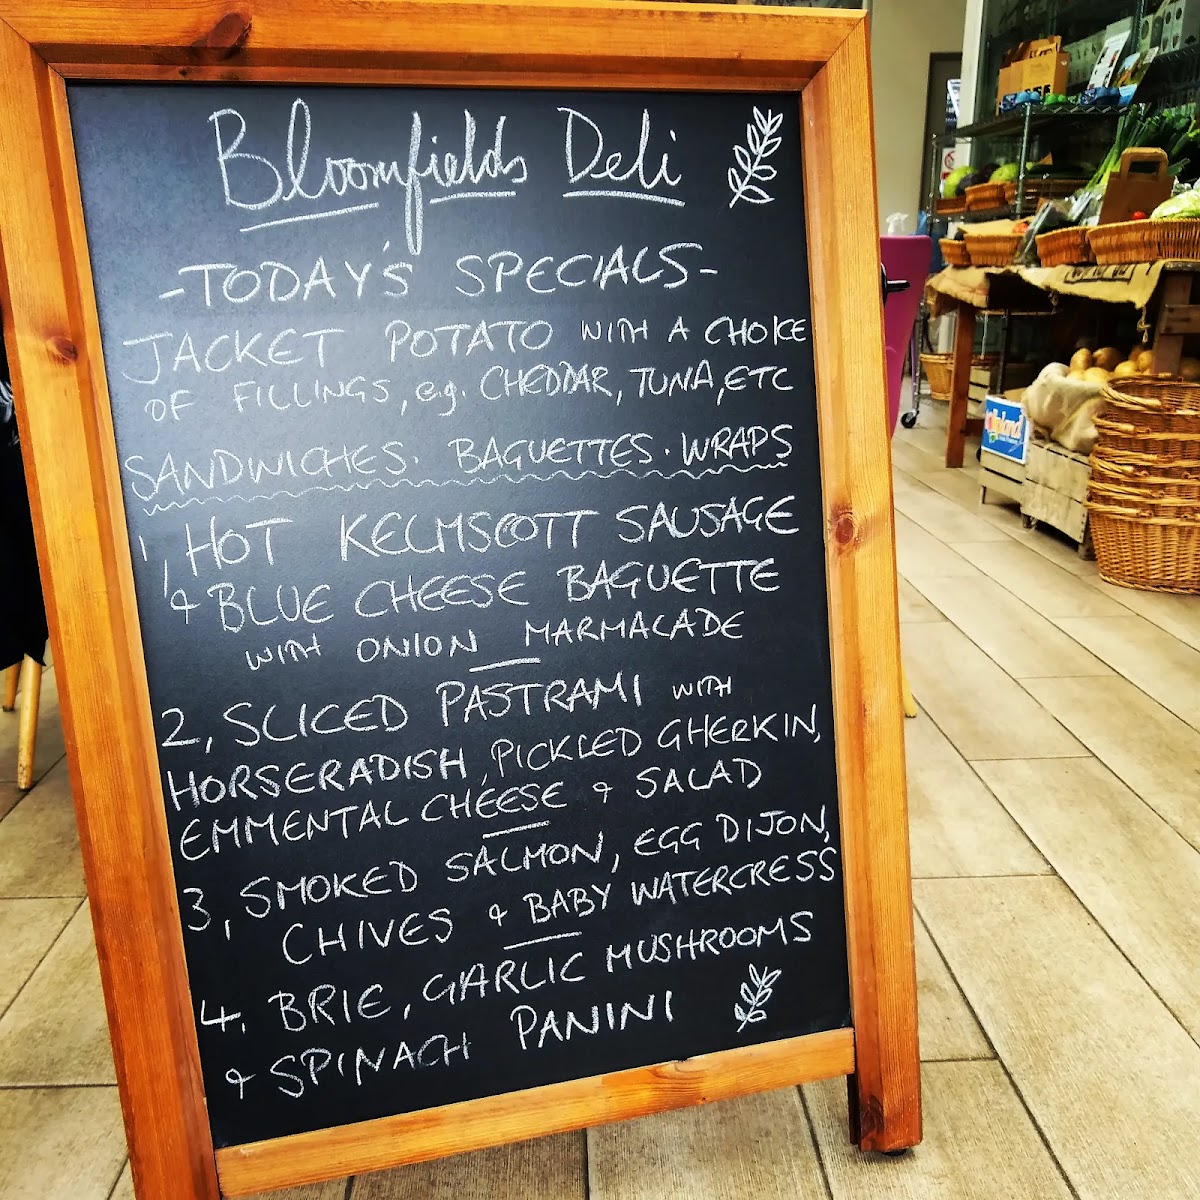 Bloomfields Deli
-TODAY'S SPECIALS-
JACKET POTATO WITH A CHOICE
OF FILLINGS, eg. CHEDDAR, TUNA, ETC
SANDWICHES. BAGUETTES. WRAPS
1, HOT KELMSCOTT SAUSAGE
& BLUE CHEESE BAGUETTE
WITH ONION MARMALADE
2, SLICED PASTRAMI WITH
HORSERADISH, PICKLED GHERKIN,
EMMENTAL CHEESE & SALAD
3, SMOKED SALMON, EGG DIJON,
CHIVES & BABY WATERCRESS
4. BRIE, GARLIC MUSHROOMS
& SPINACH PANINI